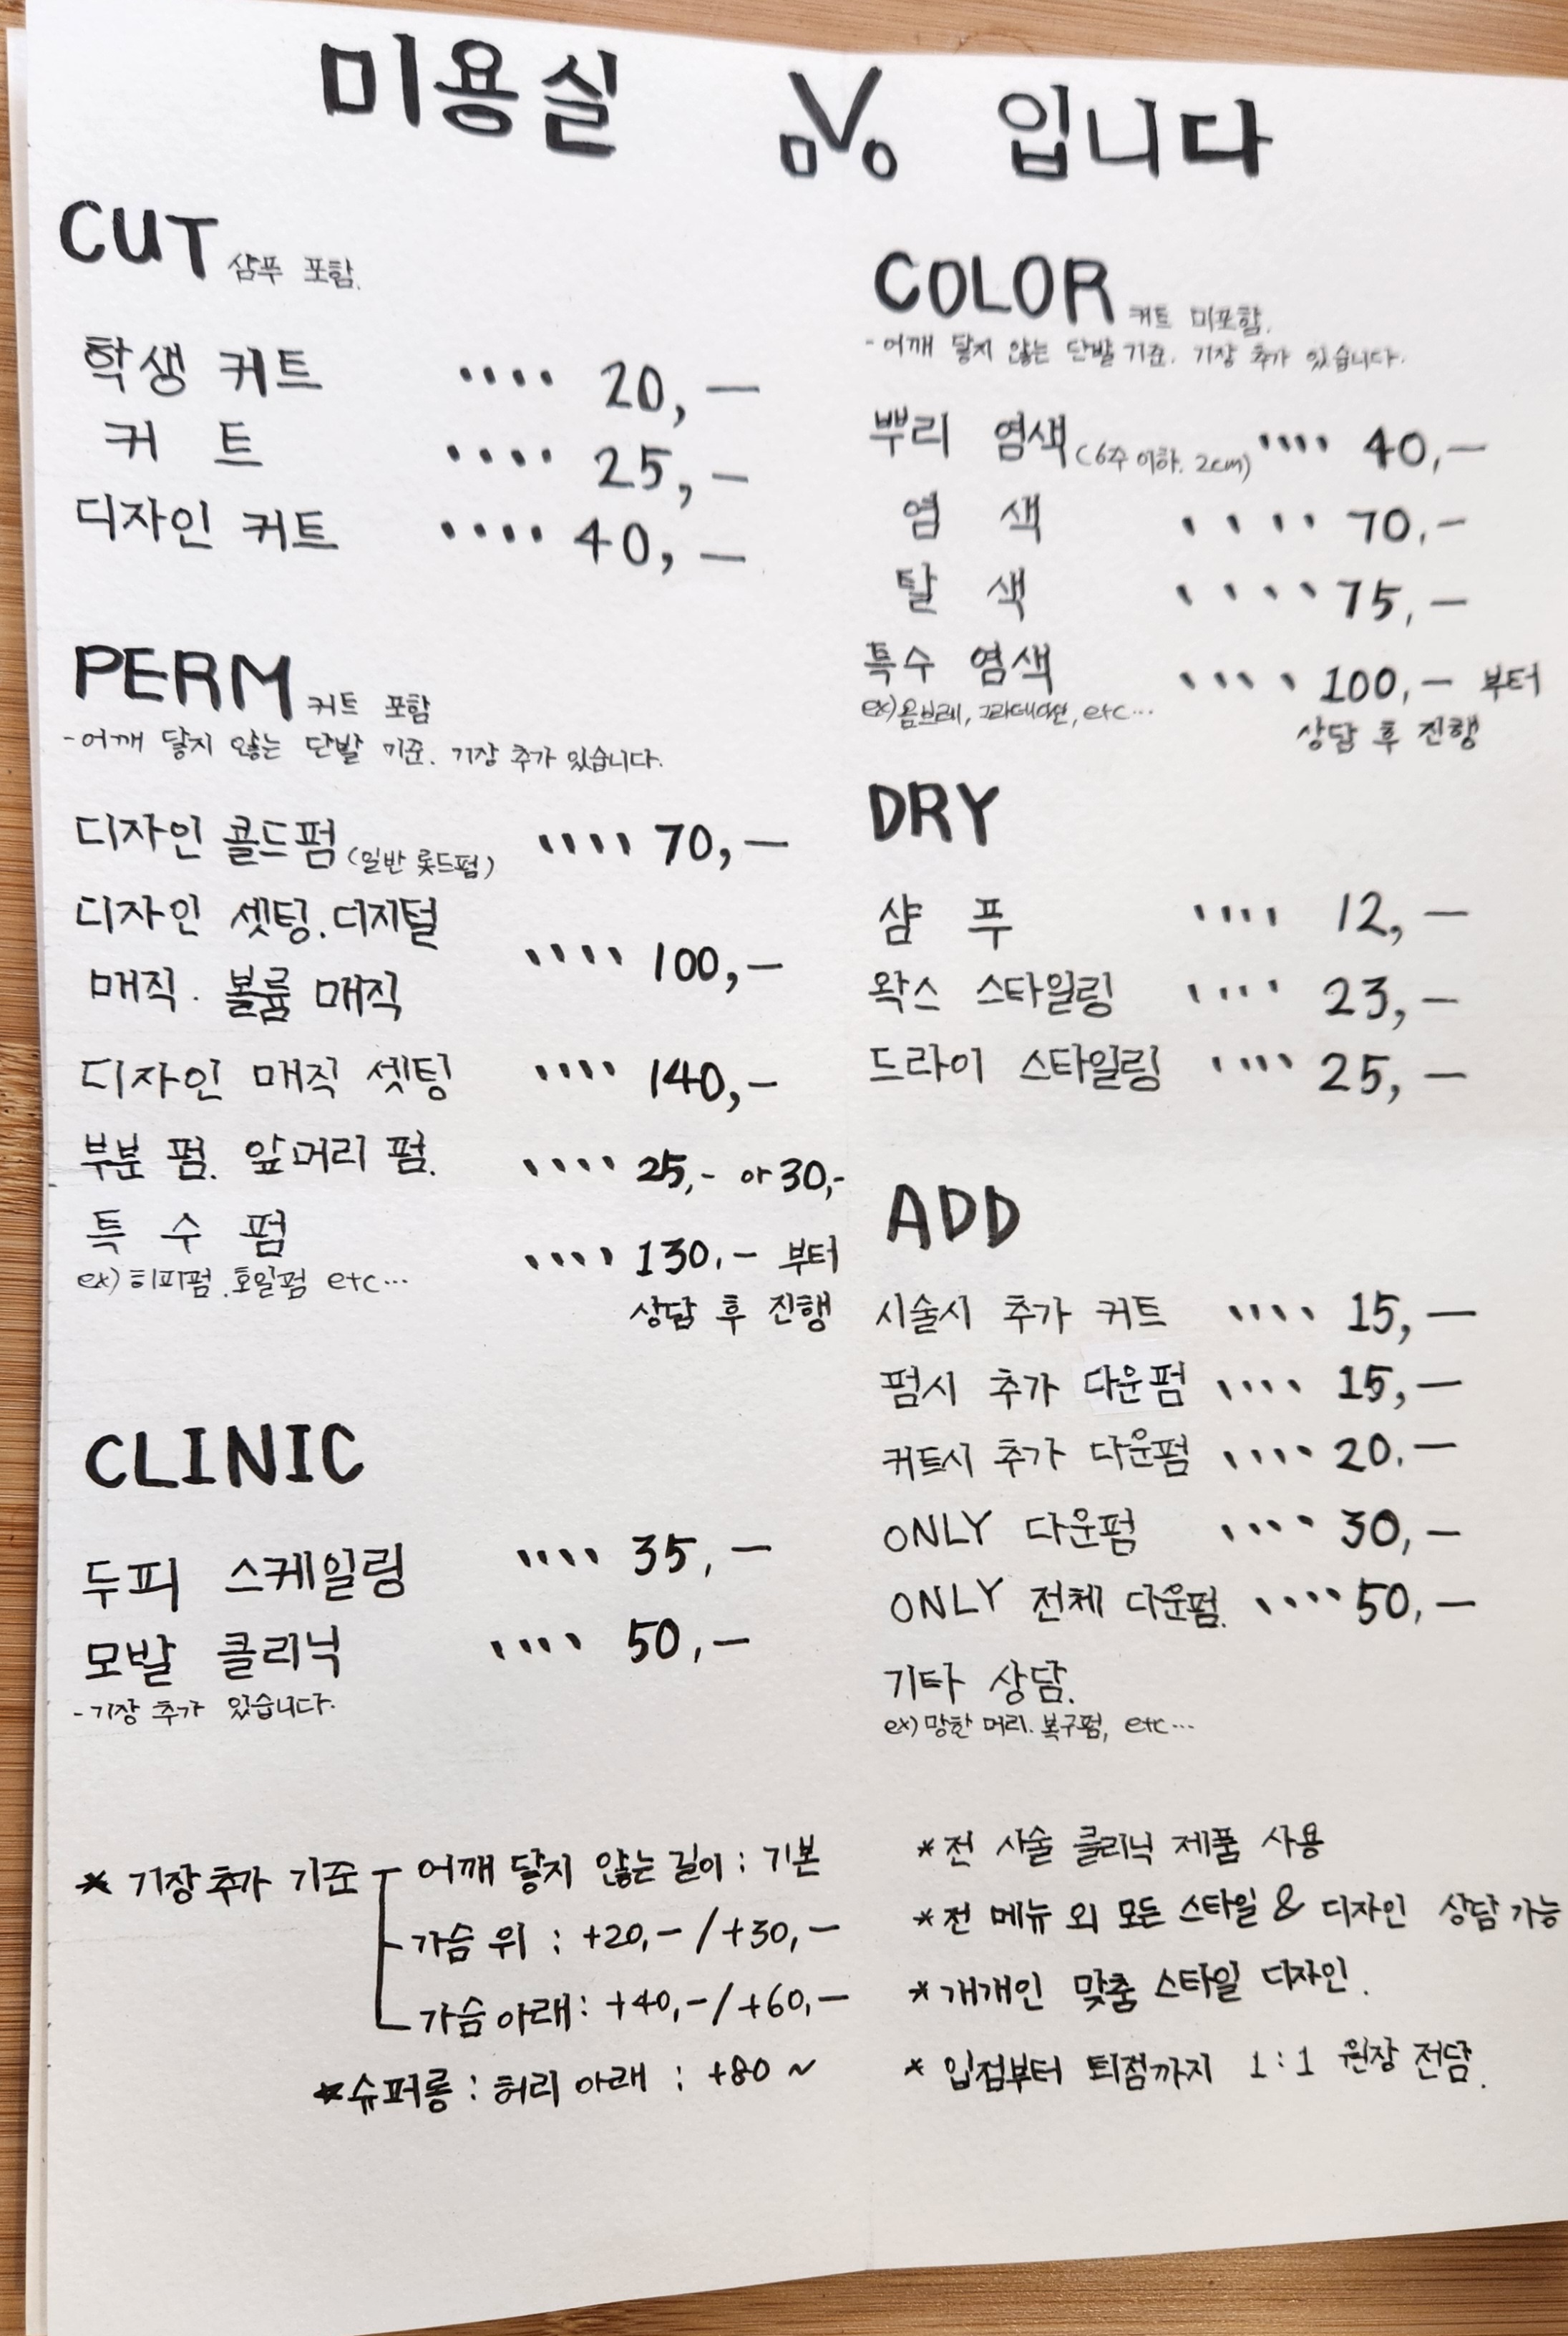 미용실 입니다
CUT 샴푸 포함.
학생 커트 •••• 20,—
커 트 •••• 25,—
디자인 커트 •••• 40,—
PERM 커트 포함
-어깨 닿지 않는 단발 기준. 기장 추가 있습니다.
디자인 콜드펌 (일반 롯드펌) •••• 70,—
디자인 셋팅.디지털
매직. 볼륨 매직 •••• 100,—
디자인 매직 셋팅 •••• 140,—
부분 펌. 앞머리 펌. •••• 25,- or 30,-
특 수 펌 •••• 130,— 부터
ex) 히피펌.호일펌 etc...
상담 후 진행
CLINIC
두피 스케일링 •••• 35,—
모발 클리닉 •••• 50,—
-기장 추가 있습니다.
* 기장추가 기준 어깨 닿지 않는 길이 : 기본
가슴 위 : +20,- / +30,—
가슴 아래 : +40,- / +60,—
*슈퍼롱 : 허리 아래 : +80 ~
COLOR 커트 미포함.
-어깨 닿지 않는 단발 기준. 기장 추가 있습니다.
뿌리 염색 (6주 이하. 2cm) •••• 40,—
염 색 •••• 70,—
탈 색 •••• 75,—
특수 염색 •••• 100,— 부터
ex) 옴브레, 그라데이션, etc...
상담 후 진행
DRY
샴 푸 •••• 12,—
왁스 스타일링 •••• 23,—
드라이 스타일링 •••• 25,—
ADD
시술시 추가 커트 •••• 15,—
펌시 추가 다운펌 •••• 15,—
커트시 추가 다운펌 •••• 20.—
ONLY 다운펌 •••• 30,—
ONLY 전체 다운펌. •••• 50,—
기타 상담.
ex) 망한 머리. 복구펌, etc...
*전 시술 클리닉 제품 사용
*전 메뉴 외 모든 스타일 & 디자인 상담 가능
*개개인 맞춤 스타일 디자인.
* 입점부터 퇴점까지 1:1 원장 전담.